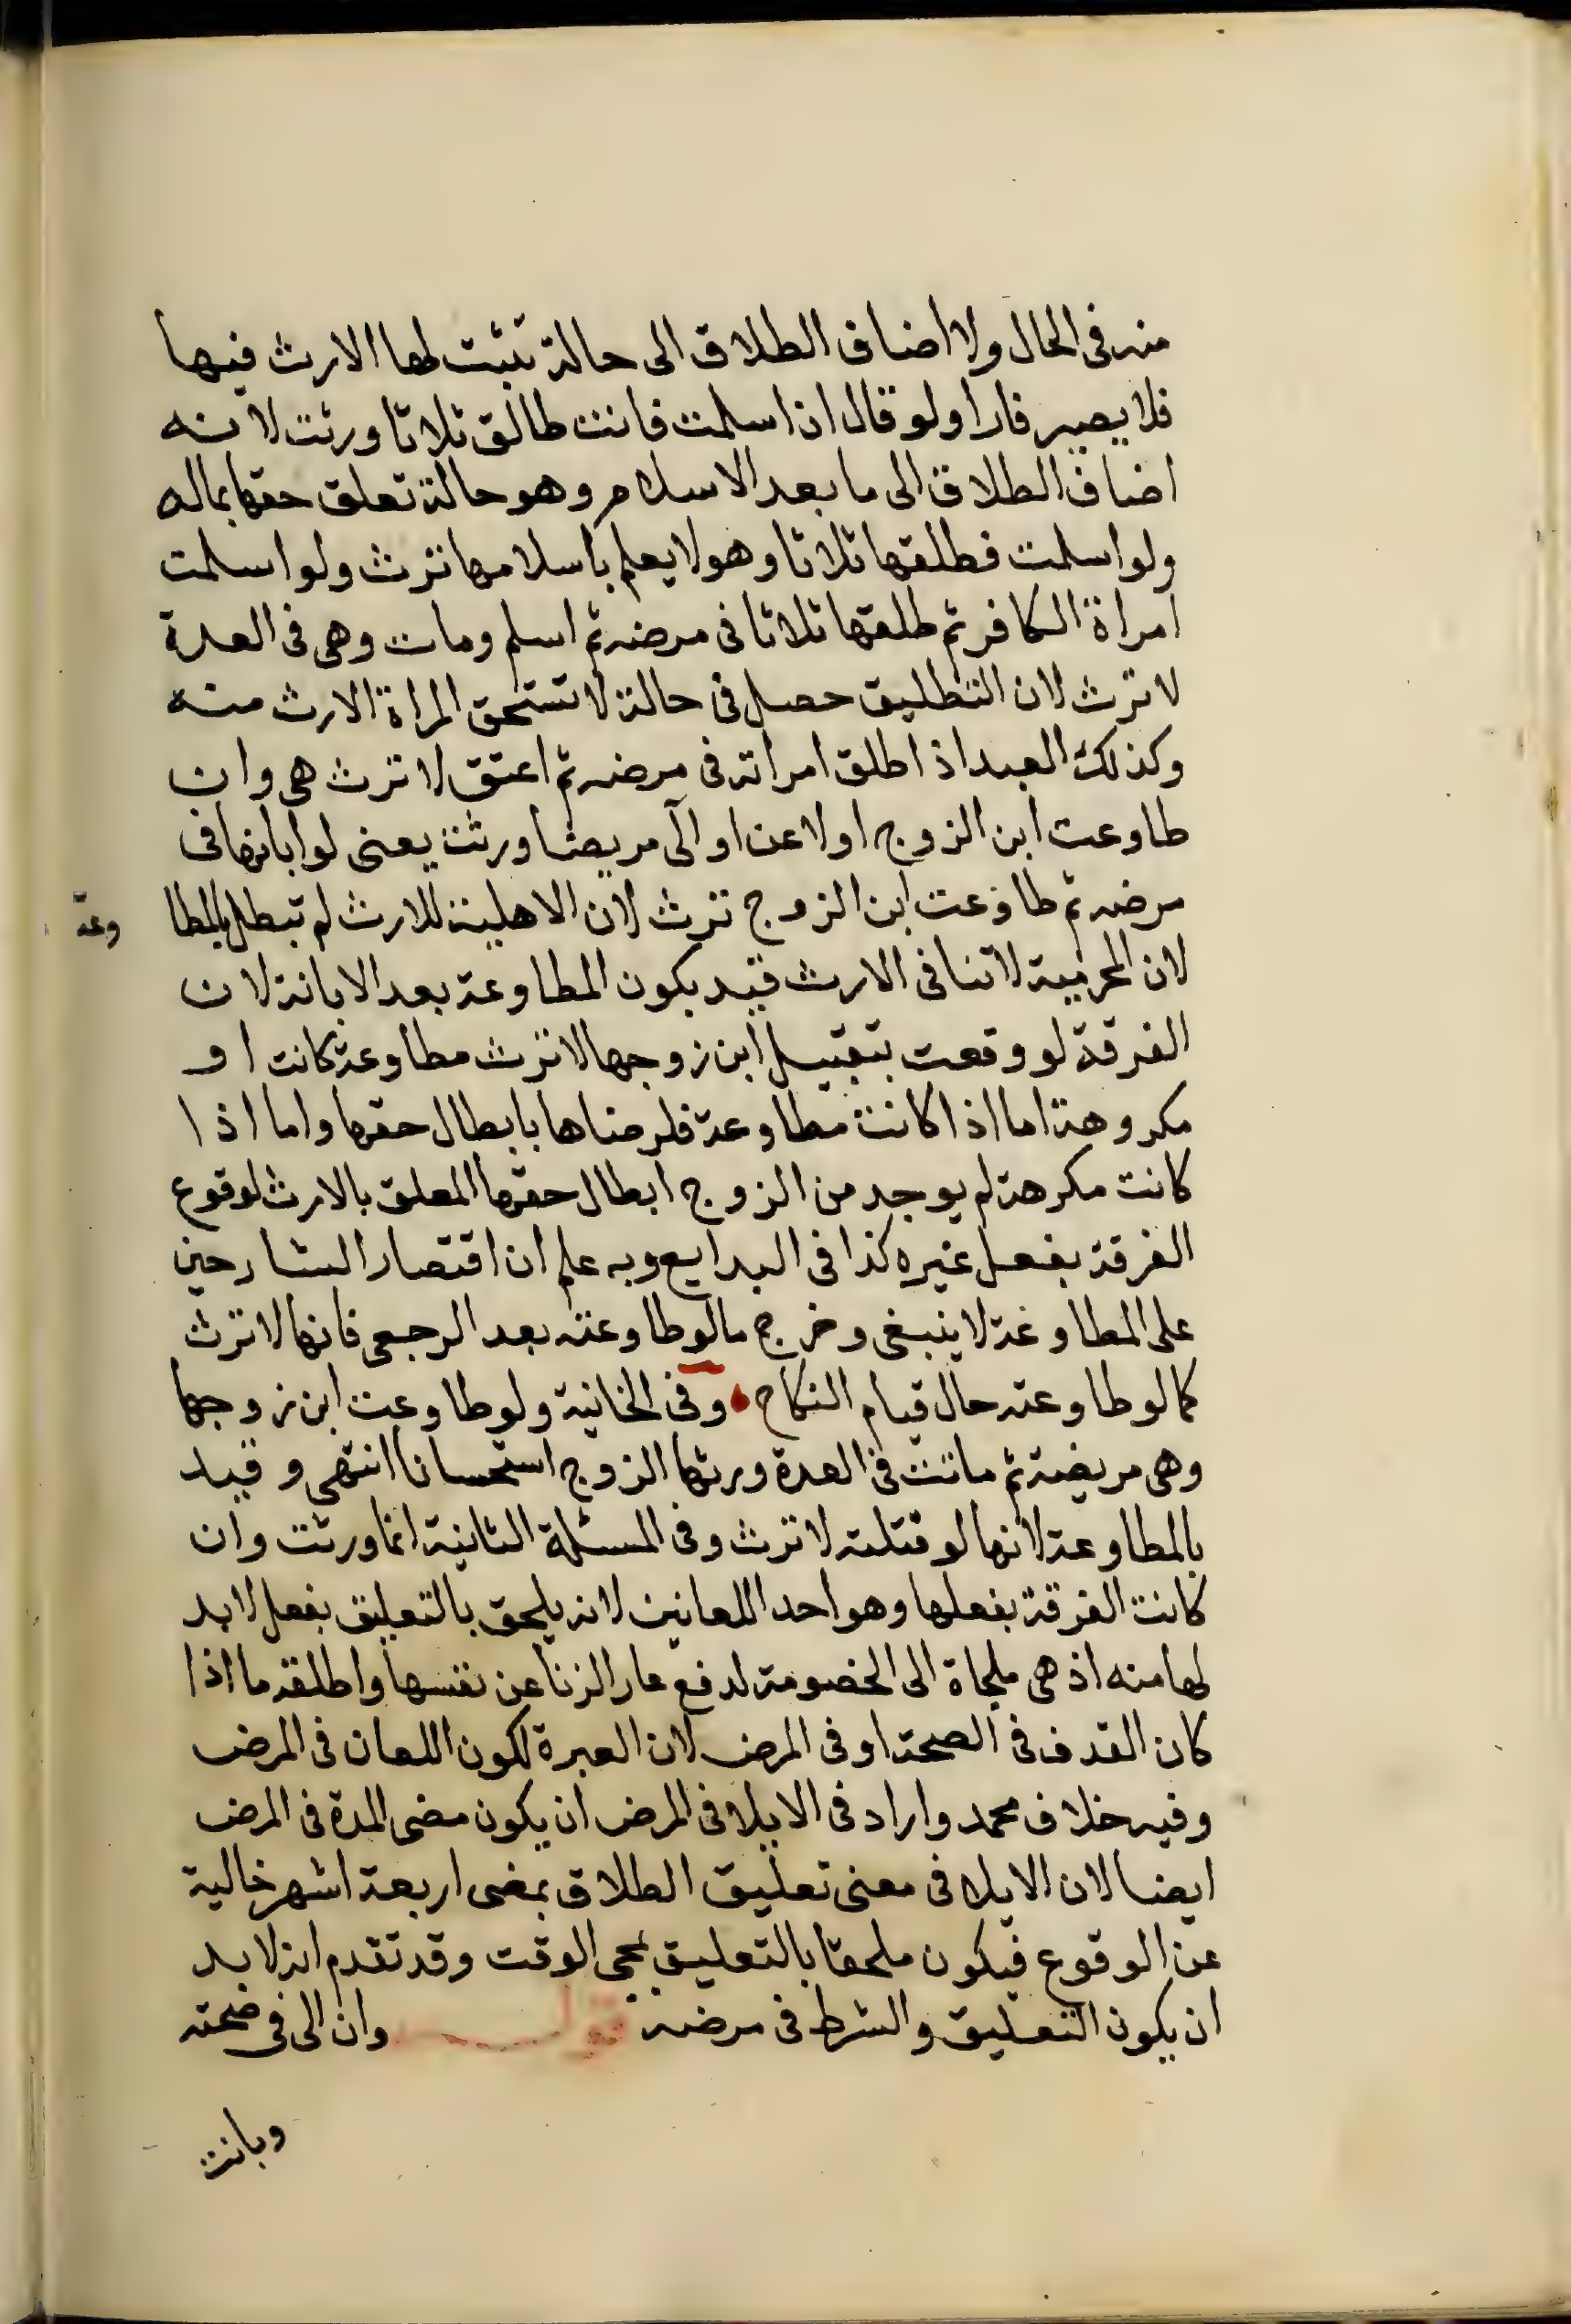 منه فى الحال ولا اضاف الطلاق الى حالة تثبت لها الارث فيها
فلا يصير فارا ولو قال اذا اسلمت فانت طالق ثلاثا ورثت لانه
اضاف الطلاق الى ما بعد الاسلام وهو حالة تعلق حقها بماله
ولو اسلمت فطلقها ثلاثا وهو لا يعلم باسلامها ترث ولو اسلمت
امراة الكافر ثم طلقها ثلاثا فى مرضه ثم اسلم ومات وهى فى العدة
لا ترث لان التطليق حصل فى حالة لا تستحق المراة الارث منه
وكذلك العبد اذا طلق امراته فى مرضه ثم اعتق لا ترث هى وان
طاوعت ابن الزوج او لاعن او آلى مريضا ورثت يعنى لو ابانها فى
مرضه ثم طاوعت ابن الزوج ترث لان الاهلية للارث لم تبطل بالمطا
وعة
لان المحرمية لا تنافى الارث قيد بكون المطاوعة بعد الابانة لان
الفرقة لو وقعت بتقبيل ابن زوجها لا ترث مطاوعة كانت او
مكروهة اما اذا كانت مطاوعة فلرضاها بابطال حقها واما اذا
كانت مكرهة لم يوجد من الزوج ابطال حقها المعلق بالارث لوقوع
الفرقة بفعل غيره كذا فى البدايع وبه علم ان اقتصار الشارحين
على المطاوعة لا ينبغى وخرج ما لو طاوعته بعد الرجعى فانها لا ترث
كما لو طاوعته حال قيام النكاح وفى الخانية ولو طاوعت ابن زوجها
وهى مريضة ثم ماتت فى العدة ورثها الزوج استحسانا انتهى وقيد
بالمطاوعة لانها لو قتلته لا ترث وفى المسئلة الثانية انما ورثت وان
كانت الفرقة بفعلها وهو احد اللعانين لانه يلحق بالتعليق بفعل لا بد
لها منه اذ هى ملجاة الى الخصومة لدفع عار الزنا عن نفسها واطلقه ما اذا
كان القذف فى الصحة او فى المرض لان العبرة لكون اللعان فى المرض
وفيه خلاف محمد واراد فى الايلا فى المرض ان يكون مضى المدة فى المرض
ايضا لان الايلا فى معنى تعليق الطلاق بمضى اربعة اشهر خالية
عن الوقوع فيكون ملحقا بالتعليق بمجى الوقت وقد تقدم انه لا بد
ان يكون التعليق والشرط فى مرضه قوله وان الى فى صحته
وبانت